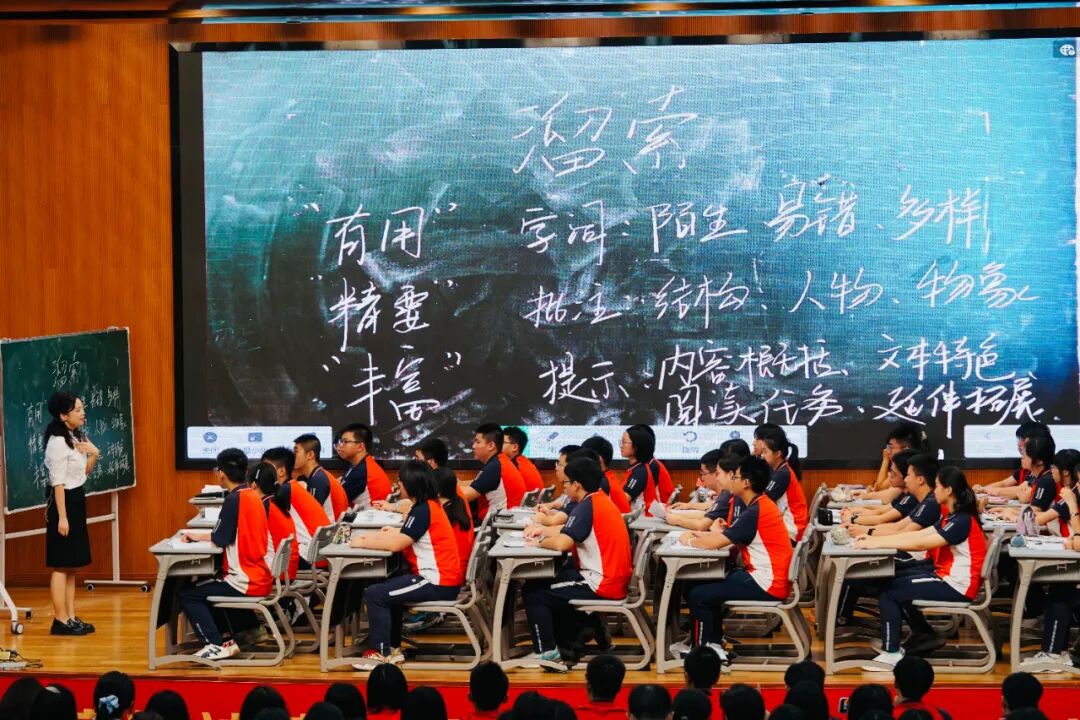 溜索
"有用" 字词：陌生、易错、多样
"精要" 批注：结构、人物、物象
"丰富" 提示：内容概括、文本特色
阅读任务、延伸拓展
溜索
有用